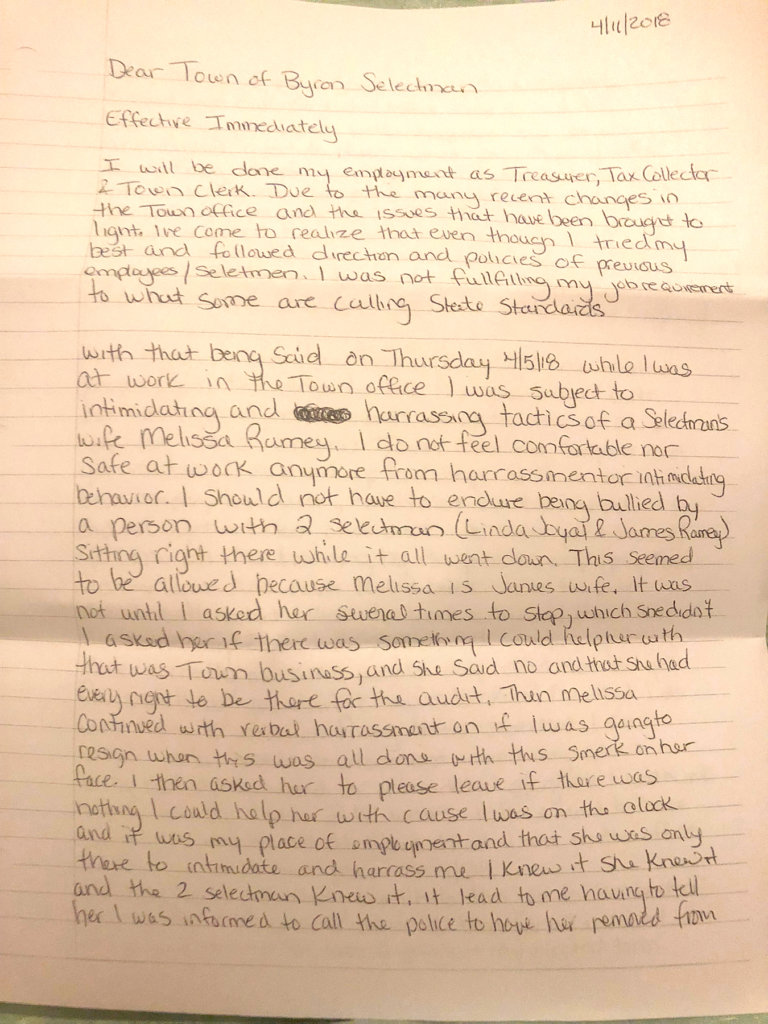 4/11/2018
Dear Town of Byron Selectman
Effective Immediately
I will be done my employment as Treasurer, Tax Collector
& Town Clerk. Due to the many recent changes in
the Town office and the issues that have been brought to
light. Ive come to realize that even though I tried my
best and followed direction and policies of previous
employees/seletmen. I was not fullfilling my job requirement
to what some are calling State Standards
With that being said on Thursday 4/5/18 while I was
at work in the Town office I was subject to
intimidating and harrassing tactics of a Selectman's
wife Melissa Ramey. I do not feel comfortable nor
Safe at work anymore from harrassment or intimidating
behavior. I should not have to endure being bullied by
a person with 2 selectman (Linda Joyal & James Ramey)
Sitting right there while it all went down. This seemed
to be allowed because Melissa is James wife. It was
not until I asked her several times to stop, which she didn't
I asked her if there was something I could help her with
that was Town business, and she said no and that she had
every right to be there for the audit. Then Melissa
Continued with verbal harrassment on if I was going to
resign when this was all done with this smerk on her
face. I then asked her to please leave if there was
nothing I could help her with cause I was on the clock
and it was my place of employment and that she was only
there to intimidate and harrass me I knew it she knew it
and the 2 selectman knew it. it lead to me having to tell
her I was informed to call the police to have her removed from